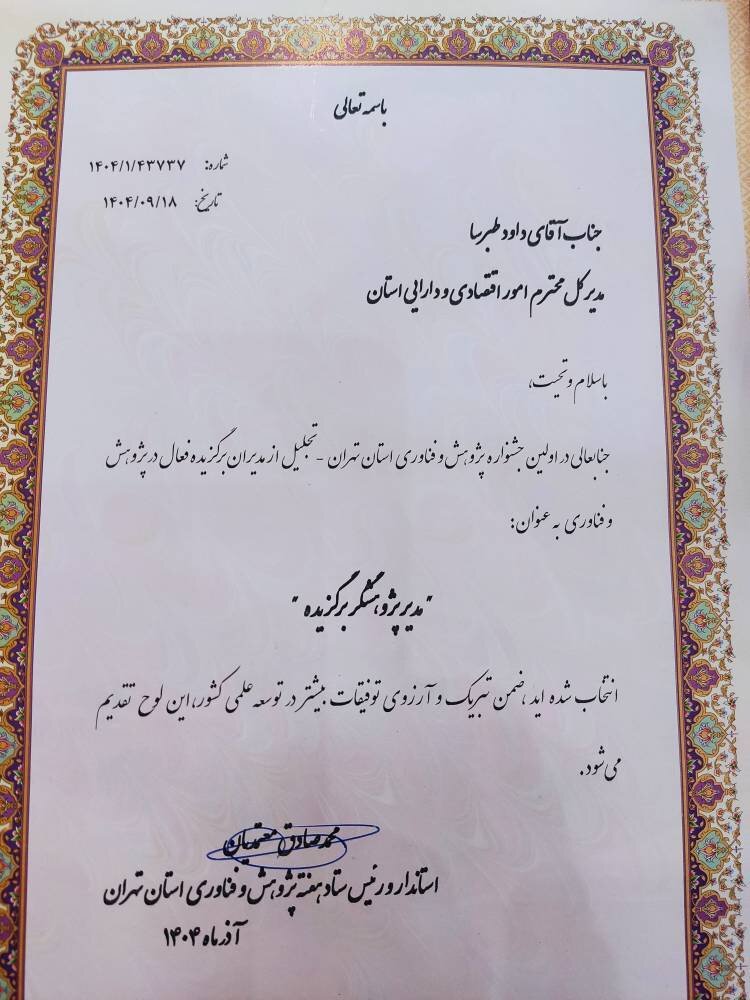 باسمه تعالی
شماره: ۱۴۰۴/۱/۴۳۷۳۷
تاریخ: ۱۴۰۴/۰۹/۱۸
جناب آقای داود طبرسا
مدیر کل محترم امور اقتصادی و دارایی استان
باسلام و تحیت،
جنابعالی در اولین جشنواره پژوهش و فناوری استان تهران - تجلیل از مدیران برگزیده فعال در پژوهش
و فناوری به عنوان:
"مدیر پژوهشگر برگزیده"
انتخاب شده اید، ضمن تبریک و آرزوی توفیقات بیشتر در توسعه علمی کشور، این لوح تقدیم
می شود.
محمد صادق معتمدیان
استاندار و رئیس ستاد هفته پژوهش و فناوری استان تهران
آذر ماه ۱۴۰۴